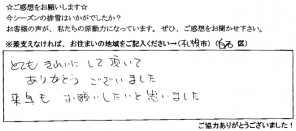 ☆ご感想をお願いします☆
今シーズンの排雪はいかがでしたか?
お客様の声が、私たちの原動力になっています。ぜひ、ご感想をお聞かせ下さい。
※差支えなければ、お住まいの地域をご記入ください→(札幌市)( 区)
とてもきれいにして頂いて
ありがとうございました
来年もお願いしたいと思いました
ご協力ありがとうございました!